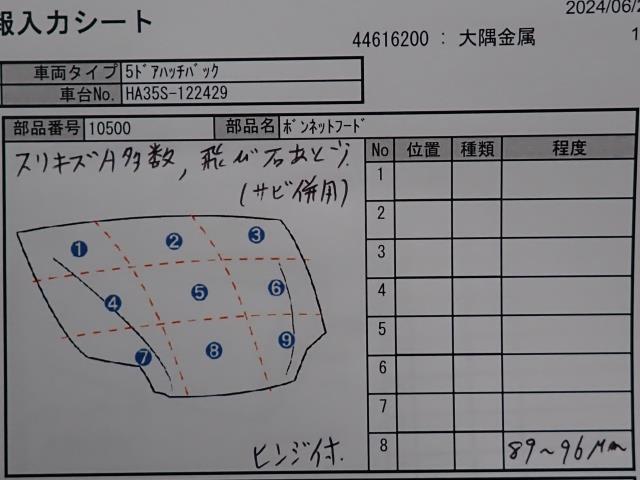 報入力シート
2024/06/2
44616200 : 大隅金属
1
車両タイプ 5ﾄﾞｱﾊｯﾁﾊﾞｯｸ
車台No. HA35S-122429
部品番号 10500 部品名 ﾎﾞﾝﾈｯﾄﾌｰﾄﾞ
スリキズA多数, 飛び石あと
(サビ併用)
No 位置 種類 程度
1
2
3
4
5
6
7
8 89~96μm
❶ ❷ ❸
❹ ❺ ❻
❼ ❽ ❾
ヒンジ付.